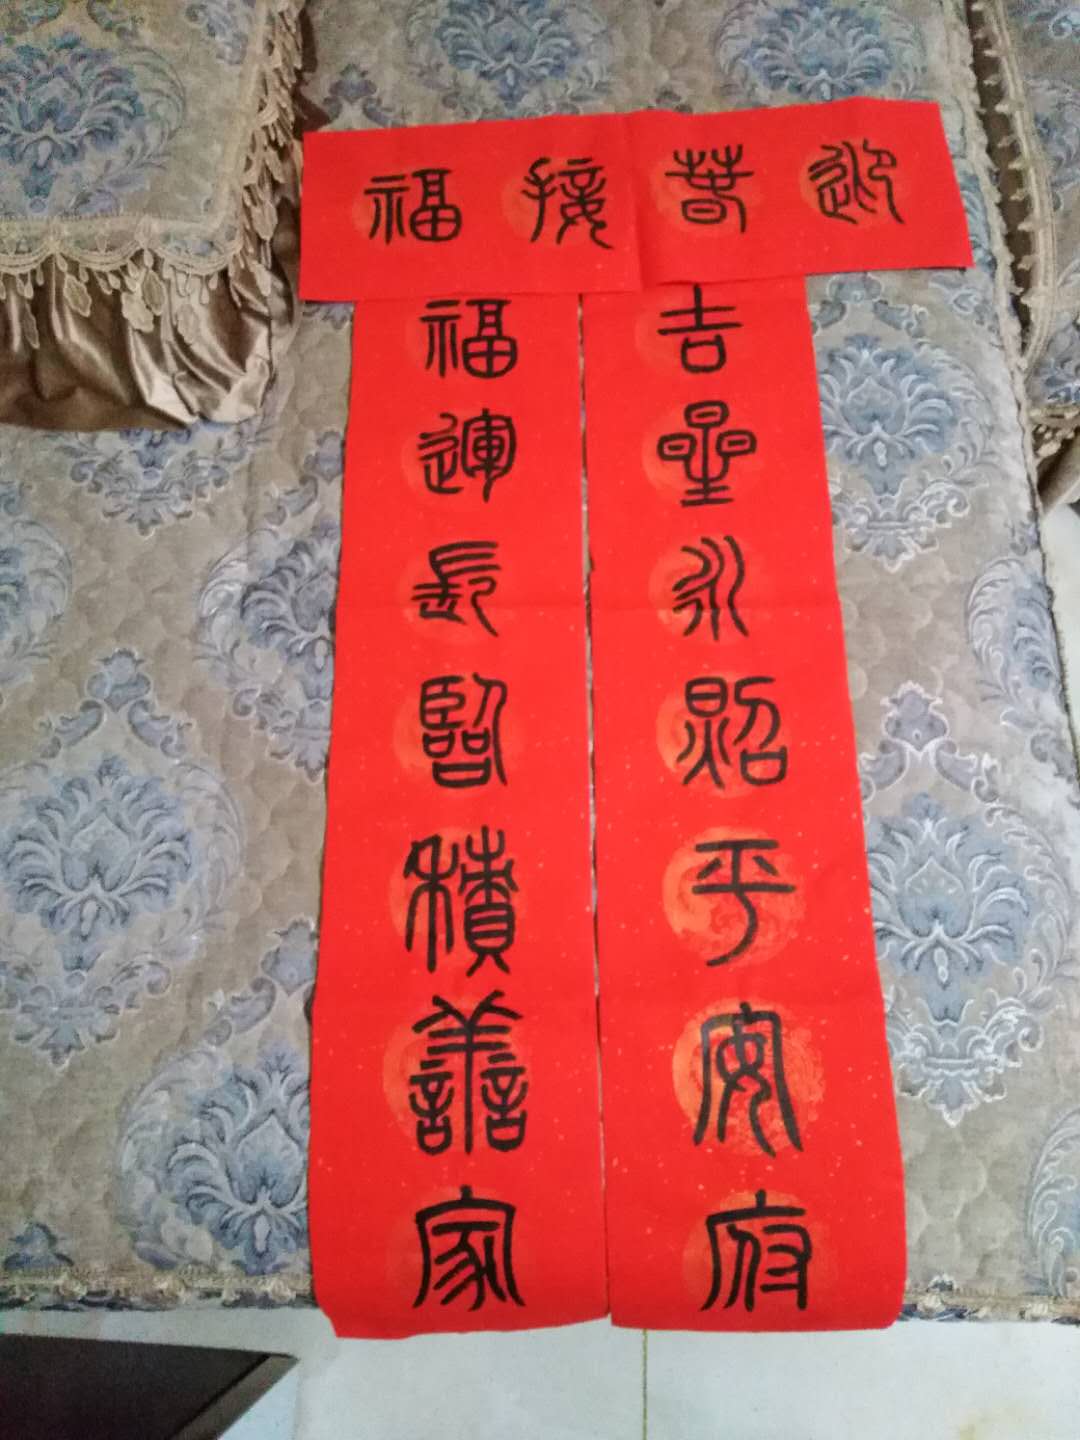 迎春接福
吉星永照平安府
福運長臨積善家